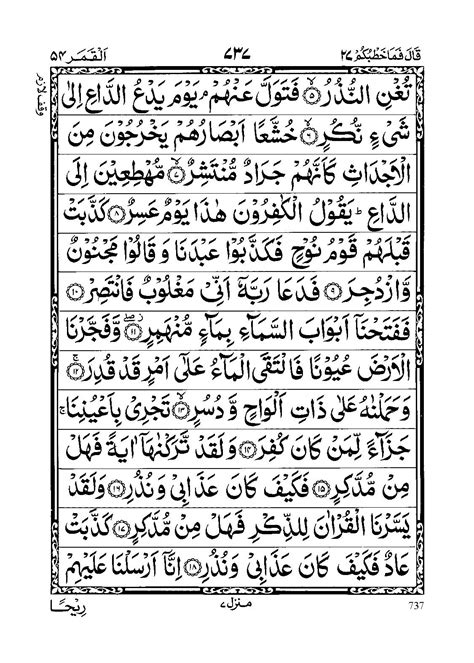 قَالَ فَمَا خَطْبُكُمْ ٢٧ ٧٣٧ اَلْقَمَر ٥٤
تُغْنِ النُّذُرُ ۙ﴿۵﴾ فَتَوَلَّ عَنْهُمْ ۘ يَوْمَ يَدْعُ الدَّاعِ اِلٰى
وقف لازم
شَیْءٍ نُّكُرٍ ۙ﴿۶﴾ خُشَّعًا اَبْصَارُهُمْ يَخْرُجُوْنَ مِنَ
الْاَجْدَاثِ كَاَنَّهُمْ جَرَادٌ مُّنْتَشِرٌ ۙ﴿۷﴾ مُّهْطِعِيْنَ اِلَى
الدَّاعِ ؕ يَقُوْلُ الْكٰفِرُوْنَ هٰذَا يَوْمٌ عَسِرٌ ﴿۸﴾ كَذَّبَتْ
قَبْلَهُمْ قَوْمُ نُوْحٍ فَكَذَّبُوْا عَبْدَنَا وَ قَالُوْا مَجْنُوْنٌ
وَّ ازْدُجِرَ ﴿۹﴾ فَدَعَا رَبَّهٗۤ اَنِّىْ مَغْلُوْبٌ فَانْتَصِرْ ﴿۱۰﴾
فَفَتَحْنَاۤ اَبْوَابَ السَّمَآءِ بِمَآءٍ مُّنْهَمِرٍ ۖ﴿۱۱﴾ وَّ فَجَّرْنَا
الْاَرْضَ عُيُوْنًا فَالْتَقَى الْمَآءُ عَلٰۤى اَمْرٍ قَدْ قُدِرَ ۚ﴿۱۲﴾
وَ حَمَلْنٰهُ عَلٰى ذَاتِ اَلْوَاحٍ وَّ دُسُرٍ ۙ﴿۱۳﴾ تَجْرِىْ بِاَعْيُنِنَا ۚ
جَزَآءً لِّمَنْ كَانَ كُفِرَ ﴿۱۴﴾ وَ لَقَدْ تَّرَكْنٰهَاۤ اٰيَةً فَهَلْ
مِنْ مُّدَّكِرٍ ﴿۱۵﴾ فَكَيْفَ كَانَ عَذَابِىْ وَ نُذُرِ ﴿۱۶﴾ وَ لَقَدْ
يَسَّرْنَا الْقُرْاٰنَ لِلذِّكْرِ فَهَلْ مِنْ مُّدَّكِرٍ ﴿۱۷﴾ كَذَّبَتْ
عَادٌ فَكَيْفَ كَانَ عَذَابِىْ وَ نُذُرِ ﴿۱۸﴾ اِنَّاۤ اَرْسَلْنَا عَلَيْهِمْ
رِيْحًا منزل ٧ 737